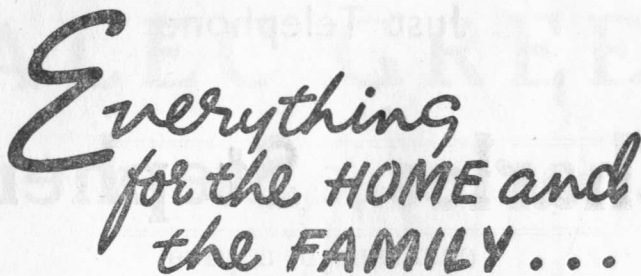 Everything
for the HOME and
the FAMILY...